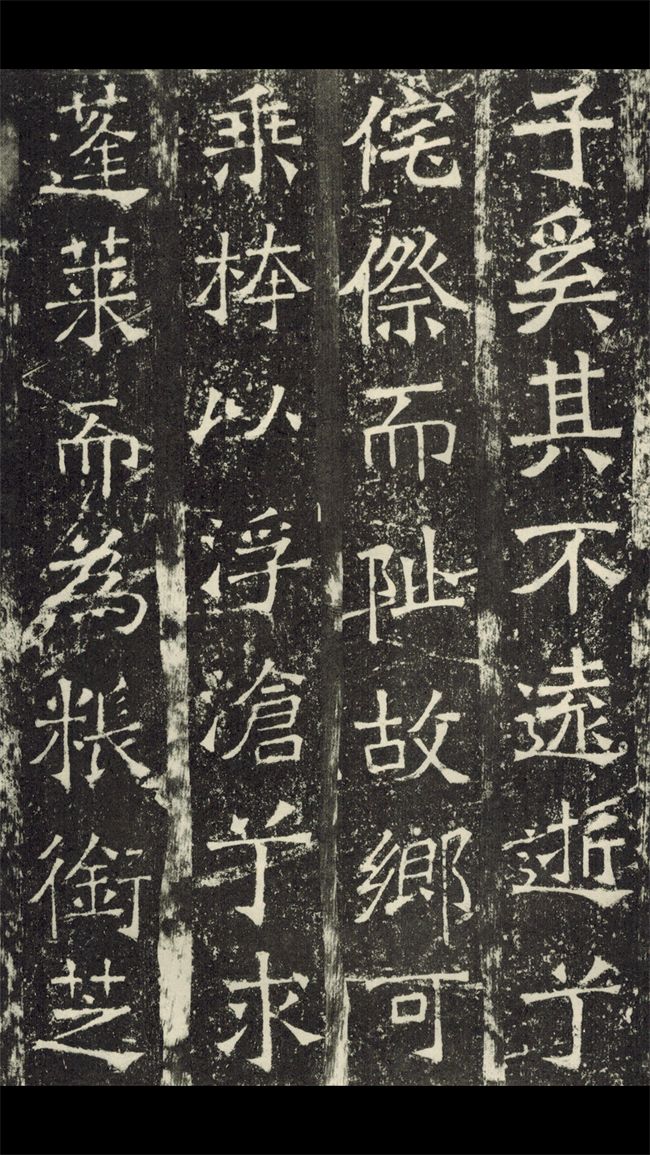 子奚其不遠逝兮
侘傺而阯故鄉可
乘桴以浮滄兮求
蓬萊而為粻銜芝